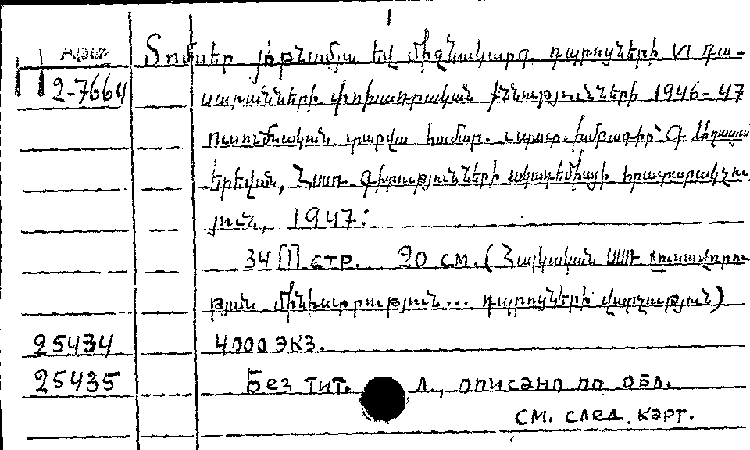 Տոմսեր յոթնամյա եվ միջնակարգ դպրոցների VI դա-
2-7664 սարանների փոխադրական քննությունների 1946-47
ուսումնական տարվա համար. պատ. խմբագիր՝ Գ.
Երեվան, Հայ. Գիտությունների ակադեմիայի հրատարակչու-
յուն, 1947։
34 [1] стр. 20 см. (Հայկական ՍՍՌ լուսավորու-
թյան մինիստրություն... դպրոցների վարչություն)
25434 4000 экз.
25435 Без тит. л., описано по обл.
см. след. карт.